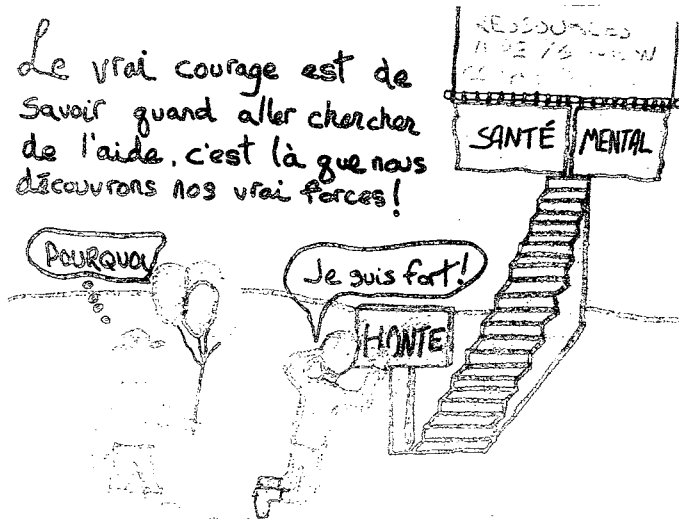 Le vrai courage est de
savoir quand aller chercher
de l'aide. c'est là que nous
découvrons nos vrai forces!
RESSOURCES
SANTÉ MENTAL
POURQUOI
Je suis fort!
HONTE